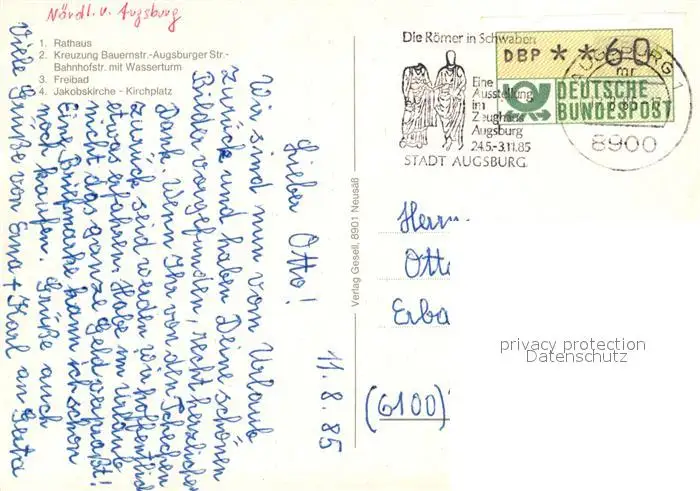 Nördl. v. Augsburg
1. Rathaus
2. Kreuzung Bauernstr.-Augsburger Str.-
Bahnhofstr. mit Wasserturm
3. Freibad
4. Jakobskirche - Kirchplatz
11.8.85
Lieber Otto!
Wir sind nun vom Urlaub
zurück und haben Deine schönen
Bilder vorgefunden, recht herzlichen
Dank. Wenn Ihr von den Tschechen
zurück seid werden wir hoffentlich
etwas erfahren. Habe im Urlaub
nicht das ganze Geld verpraßt!
Eine Briefmarke kann ich schon
noch kaufen. Grüße auch
an Gerta
Viele Grüße von Erna + Karl
Verlag Gesell, 8901 Neusäß
Die Römer in Schwaben
Eine
Ausstellung
im
Zeughaus
Augsburg
24.5.-3.11.85
STADT AUGSBURG
DBP **60
DEUTSCHE
BUNDESPOST
AUGSBURG 1
8900
Herrn
Otto
Erba
(6100)
privacy protection
Datenschutz